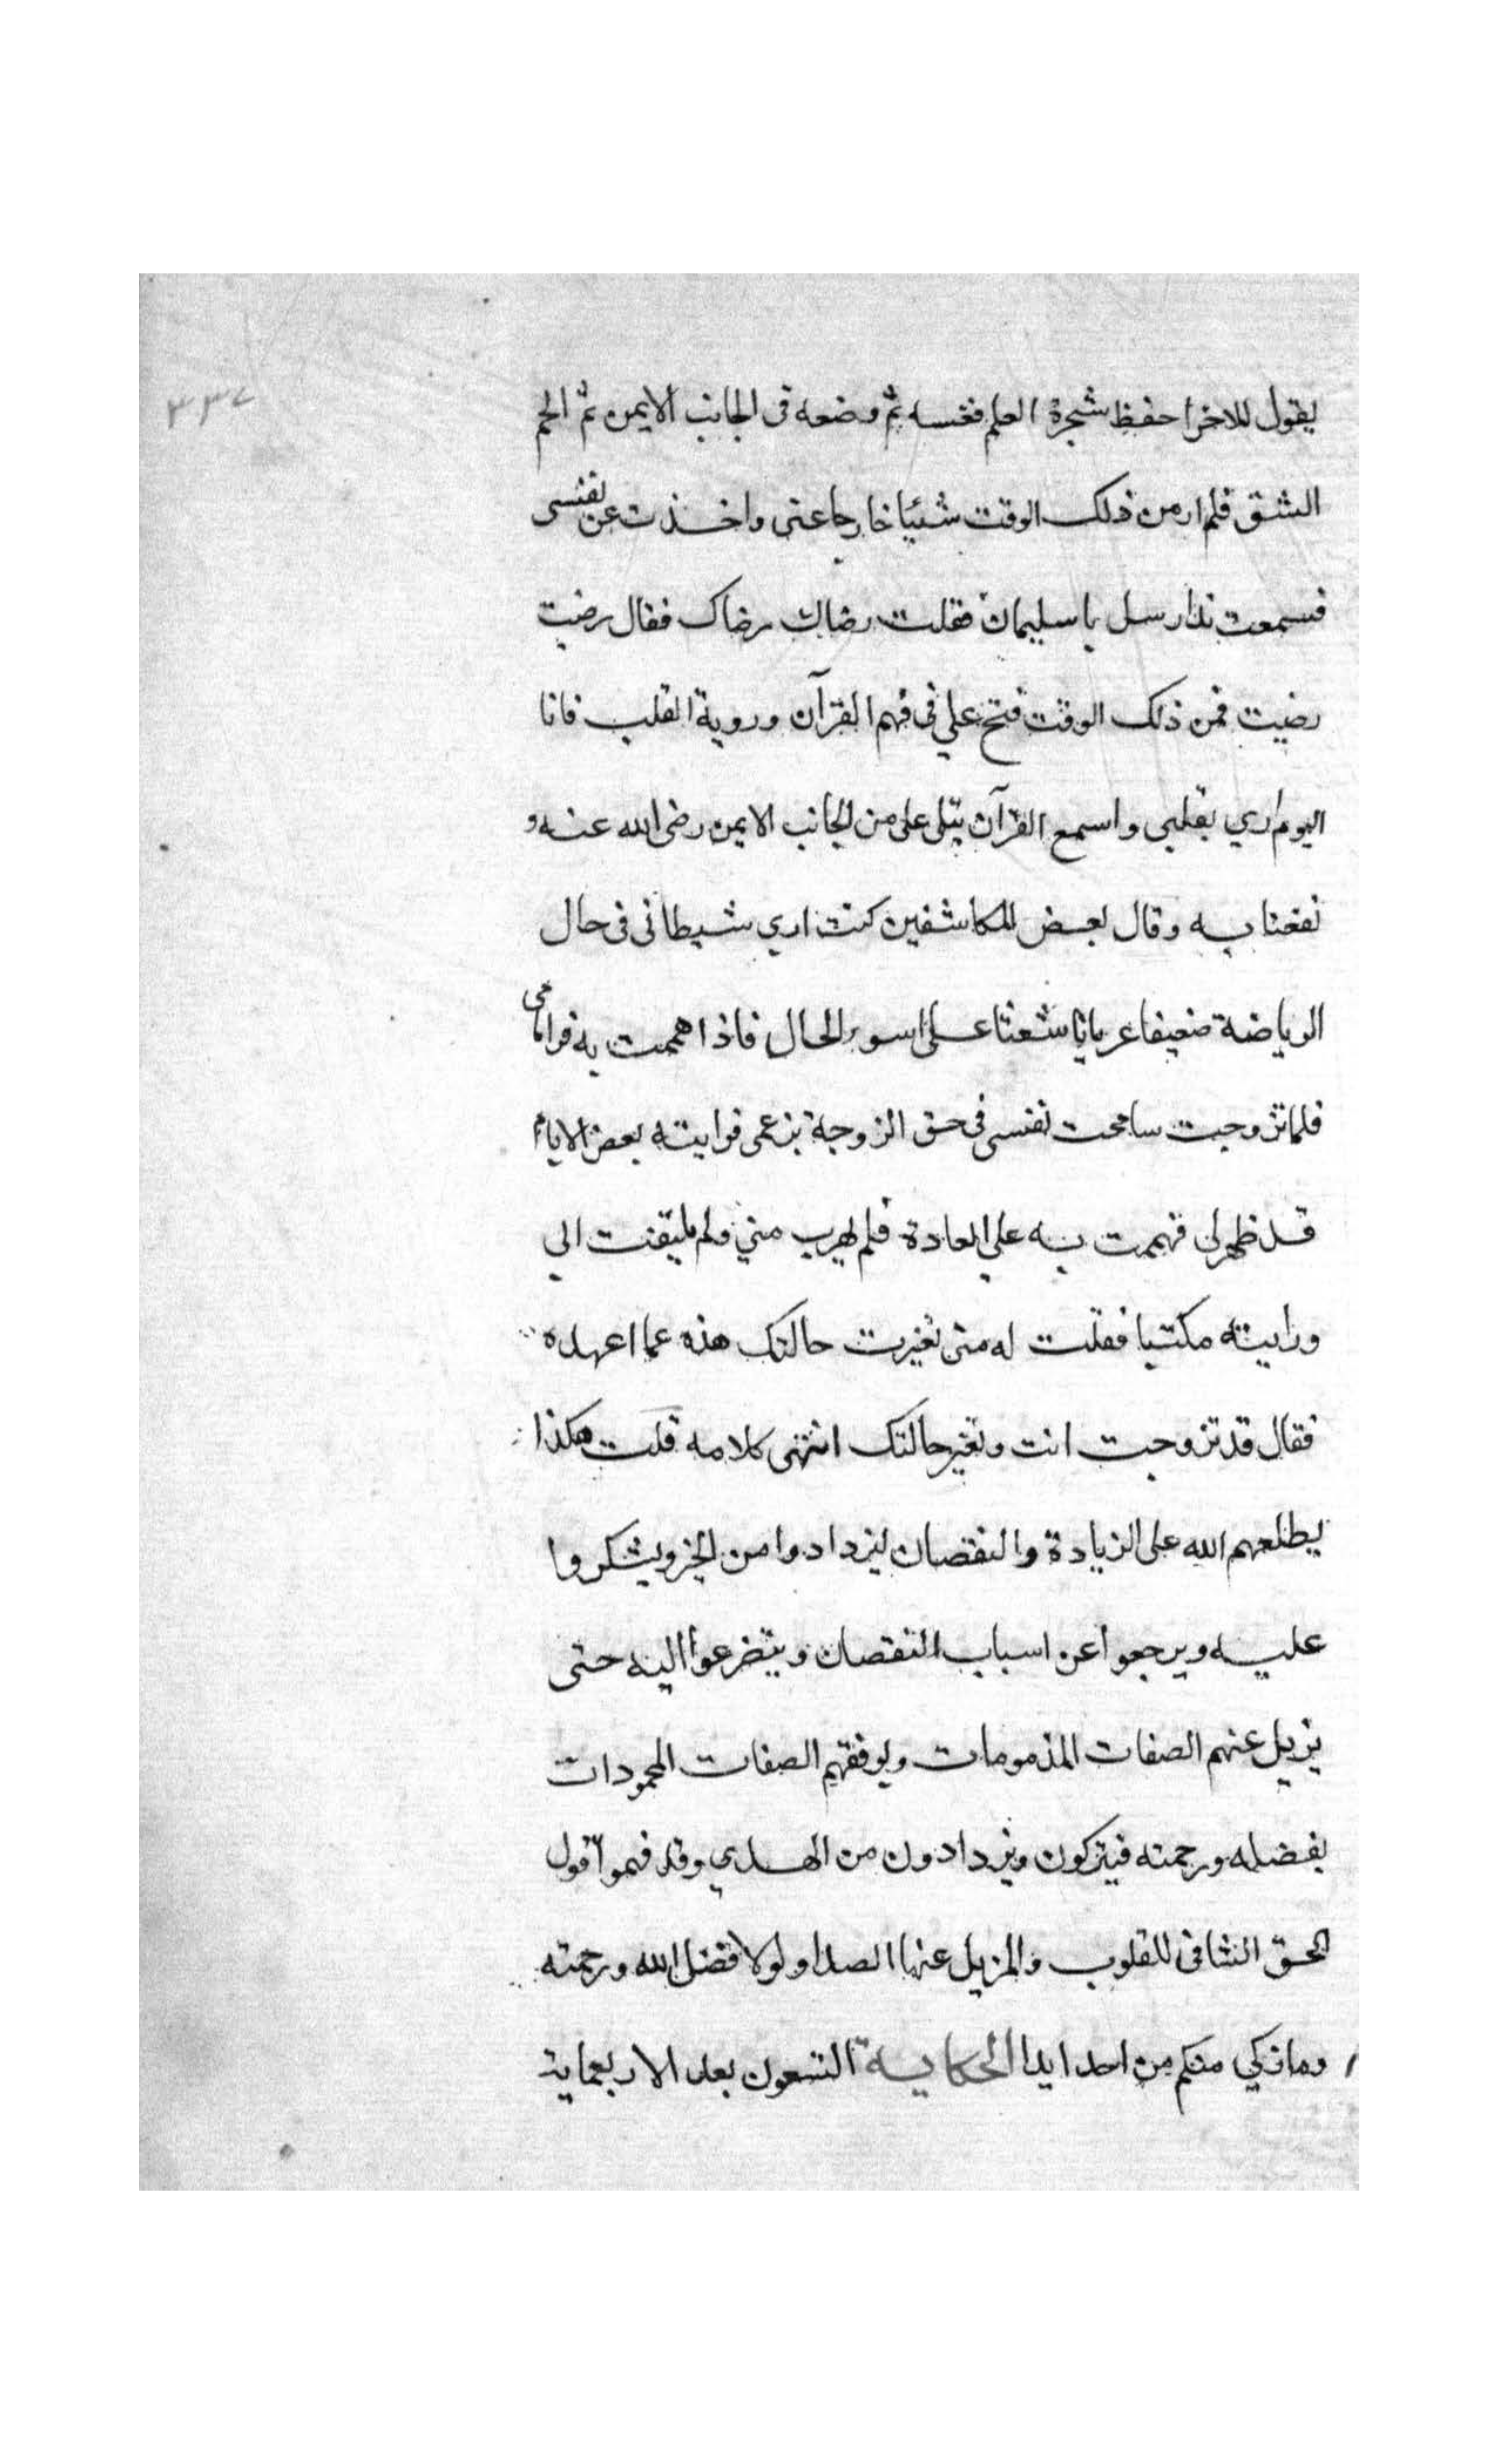 ٣٣٧
يقول للاخر احفظ شجرة العلم فغسه ثم وضعه فى الجانب الايمن ثم الحم
الشق فلم ار من ذلك الوقت شئيا خارجا عنى واخذت عن نفسى
فسمعت ندا رسل يا سليمان فقلت رضاك رضاك فقال رضيت
رضيت فمن ذلك الوقت فتح علي فى فهم القرآن وروية القلب فانا
اليوم اري بقلبى واسمع القرآن يتلى على من الجانب الايمن رضى الله عنه و
نفعنا به وقال بعض المكاشفين كنت اري شيطانى فى حال
الرياضة ضعيفا عريانا شعثا على اسو الحال فاذا هممت به فر امامى
فلما تزوجت سامحت نفسى فى حق الزوجة بزعمى فرايته بعض الايام
قد ظهر لى فهممت به على العادة فلم يهرب مني ولم يليتفت الى
ورايته مكتسيا فقلت له متى تغيرت حالتك هذه عما اعهده
فقال قد تزوجت انت وتغير حالتك انتهى كلامه قلت هكذا
يطلعهم الله على الزيادة والنقصان ليزدادوا من الخير ويشكروا
عليه ويرجعوا عن اسباب النقصان ويتضرعوا اليه حتى
يزيل عنهم الصفات المذمومات ويوفقهم الصفات المحمودات
بفضله ورحمته فيتزكون ويزدادون من الهدي وقد فهموا قول
الحق الشافى للقلوب والمزيل عنها الصدا ولولا فضل الله ورحمته
وما زكي منكم من احد ابدا الحكاية التسعون بعد الاربعماية